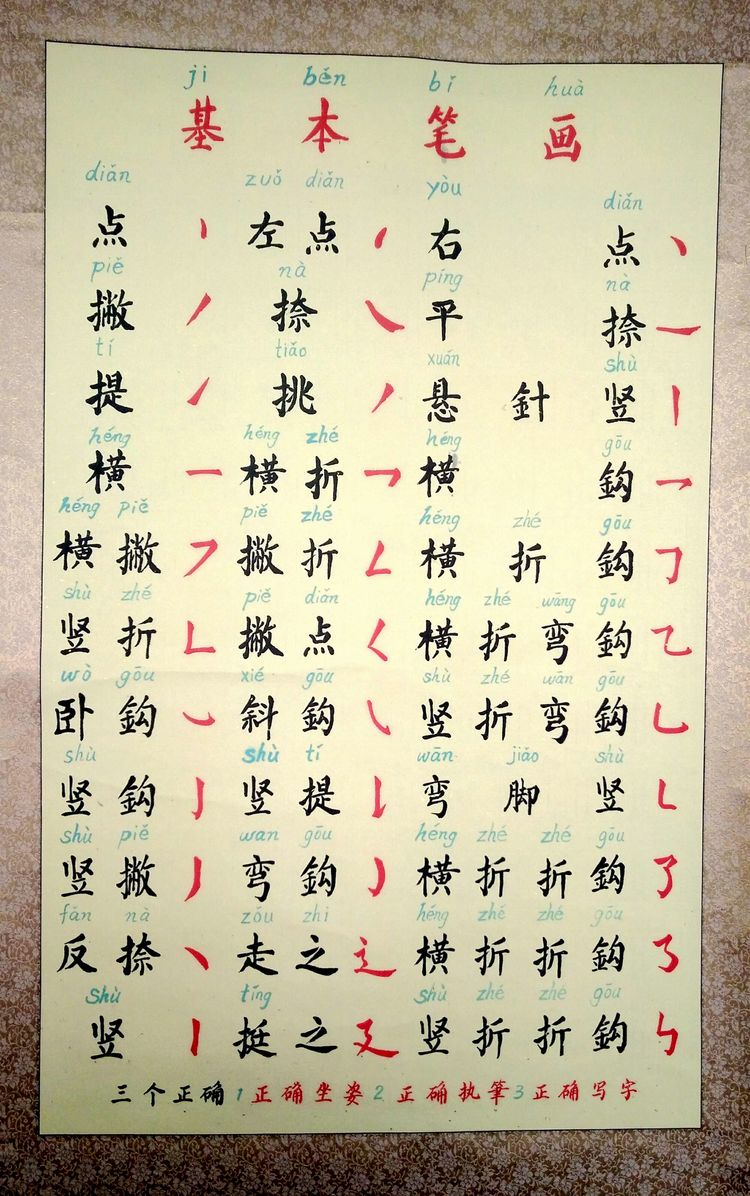 jī běn bǐ huà
基 本 笔 画
diǎn zuǒ diǎn yòu diǎn
点 左 点 右 点
piě nà píng nà
撇 捺 平 捺
tí tiǎo xuán shù
提 挑 悬 針 竖
héng héng zhé héng gōu
横 横 折 横 鈎
héng piě piě zhé héng zhé gōu
横 撇 撇 折 横 折 鈎
shù zhé piě diǎn héng zhé wāng gōu
竖 折 撇 点 横 折 弯 鈎
wò gōu xié gōu shù zhé wān gōu
卧 鈎 斜 鈎 竖 折 弯 鈎
shù shù tí wān jiǎo shù
竖 鈎 竖 提 弯 脚 竖
shù piě wan gōu héng zhé zhé gōu
竖 撇 弯 鈎 横 折 折 鈎
fǎn nà zǒu zhi héng zhé zhé gōu
反 捺 走 之 横 折 折 鈎
shù tíng shù zhé zhé gōu
竖 挺 之 竖 折 折 鈎
三个正确 1 正确坐姿 2 正确执筆 3 正确写字